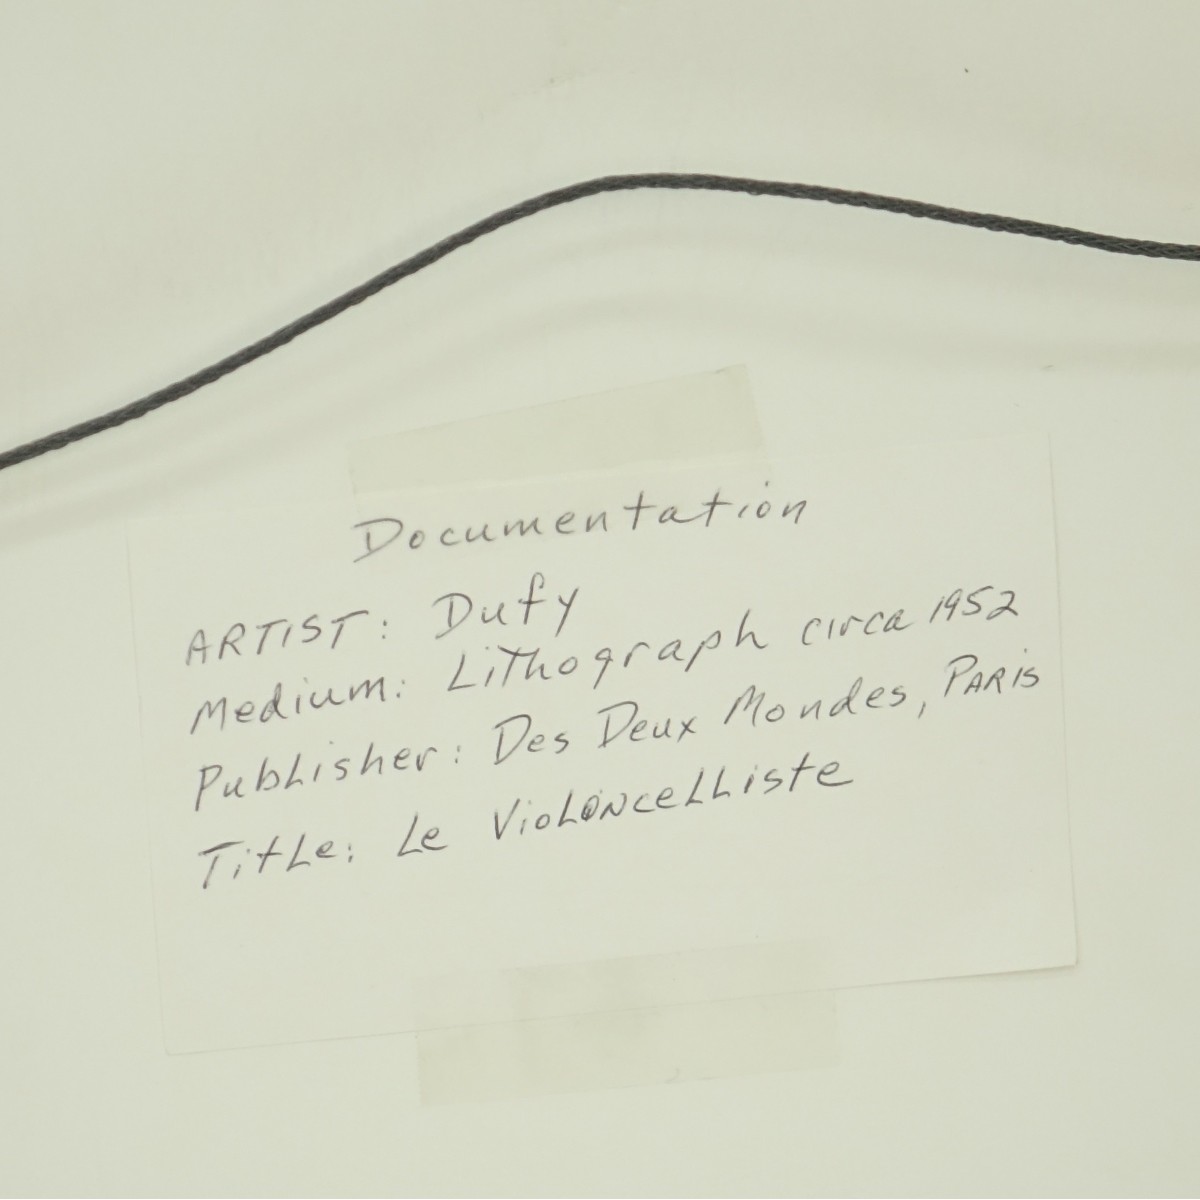 Documentation
ARTIST: Dufy
Medium: Lithograph circa 1952
Publisher: Des Deux Mondes, PARIS
Title: Le Violoncelliste